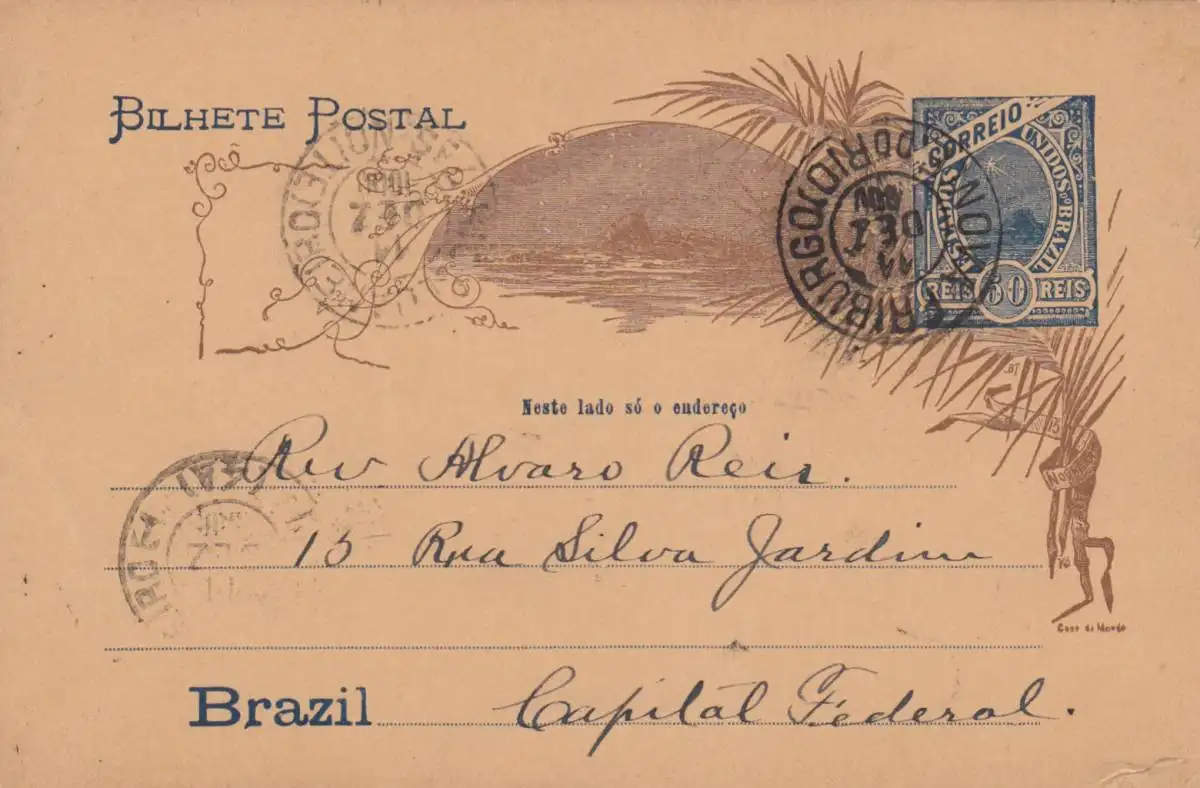 BILHETE POSTAL
CORREIO
ESTADOS UNIDOS DO BRAZIL
REIS 50 REIS
FRIBURGO
DO RIO
11
DEZ
Neste lado só o endereço
Rev Alvaro Reis.
15 Rua Silva Jardim
Brazil Capital Féderal.
Casa da Moeda